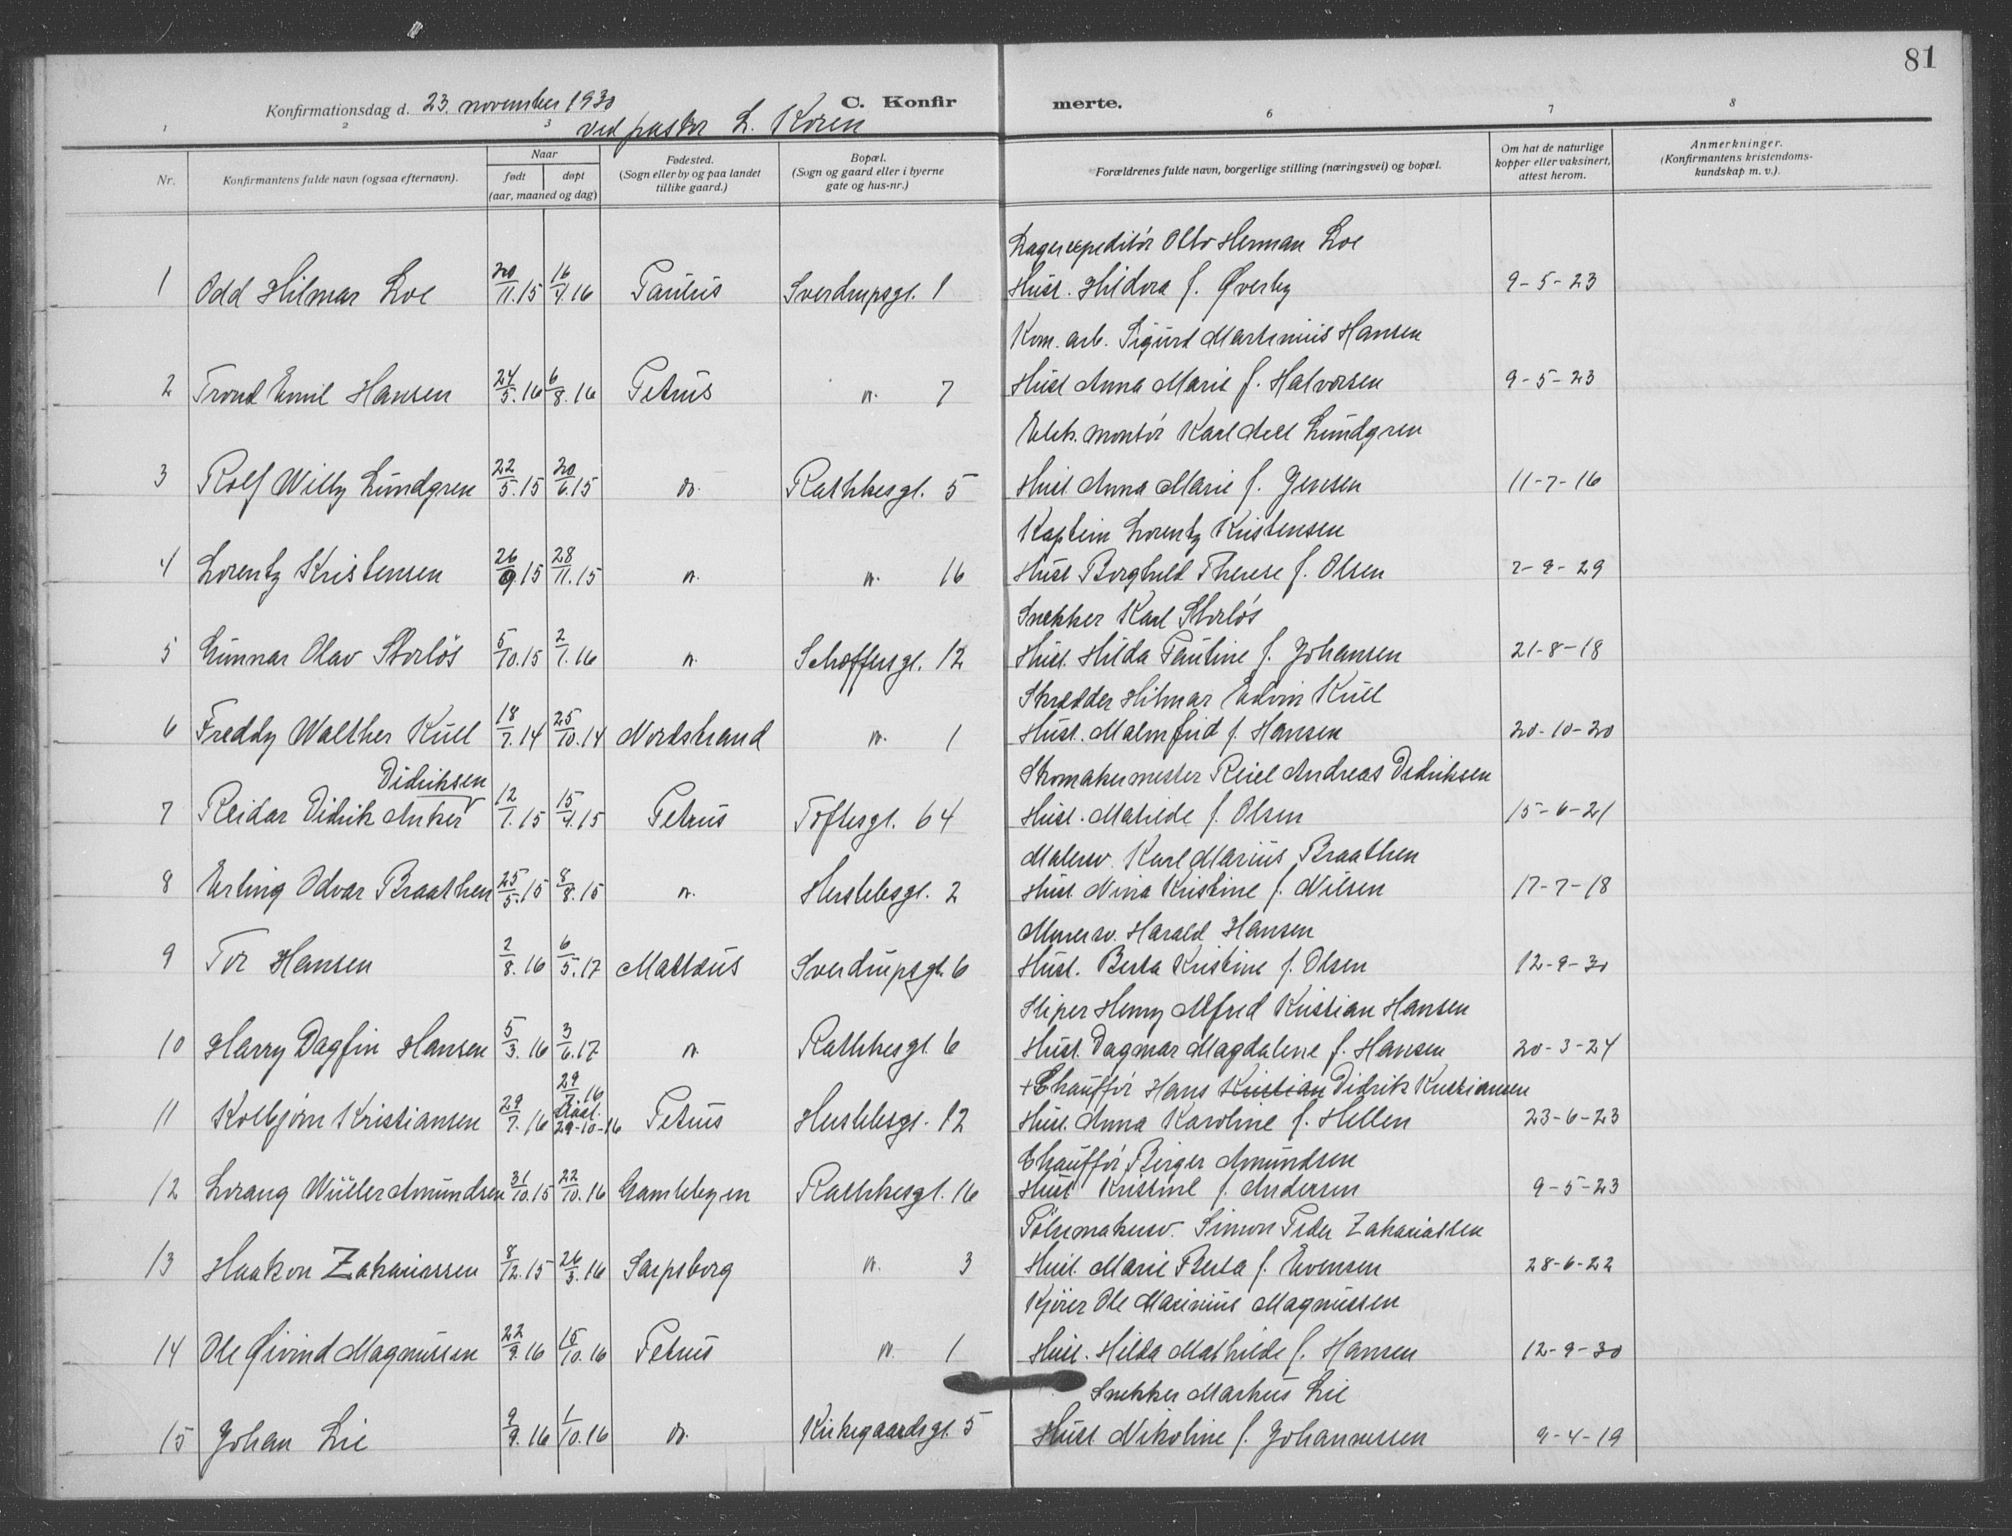 81
Konfirmationsdag d. 23. november 1930 C. Konfirmerte.
ved pastor L. Koren
1 2 3 6 7 8
Nr. Konfirmantens fulde navn (ogsaa efternavn). Naar født døpt (aar, maaned og dag) Fødested. (Sogn eller by og paa landet tillike gaard.) Bopæl. (Sogn og gaard eller i byerne gate og hus-nr.) Forældrenes fulde navn, borgerlige stilling (næringsvei) og bopæl. Om hat de naturlige kopper eller vaksinert, attest herom. Anmerkninger. (Konfirmantens kristendoms-kundskap m. v.).
Lagerexpeditör Otto Herman Loe
1 Odd Hilmar Loe 20/11.15 16/4.16 Paulus Sverdrupsgt. 1 Hust. Hildora f. Øverby 9-5-23
Kom. arb. Sigurd Martinius Hansen
2 Trond Emil Hansen 24/5.16 6/8.16 Petrus n. 7 Hust Anna Marie f. Halvorsen 9-5-23
Elek. montör Karl Lundgren
3 Rolf Willy Lundgren 22/5.15 20/6.15 do. Rathkesgt. 5 Hust Anna Marie f. Jensen 11-7-16
Kaptein Lorentz Kristensen
4 Lorentz Kristensen 26/9.15 28/11.15 n. n. 16 Hust Borghild Therese f. Olsen 2-9-29
Snekker Karl Storlös
5 Gunnar Olav Storlös 5/10.15 2/1.16 n. Schæffersgt. 12 Hust. Hilda Pauline f. Johansen 21-8-18
Skredder Hilmar Edvin Kull
6 Freddy Walther Kull 18/7.14 25/10.14 Nordstrand n. 1 Hust. Malmfrid f. Hansen 20-10-20
Didriksen Skomakermester Reiel Andreas Didriksen
7 Reidar Didrik Anker 12/1.15 15/4.15 Petrus Toftesgt. 64 Hust. Matilde f. Olsen 15-6-21
Malersv. Karl Marius Braathen
8 Erling Odvar Braathen 25/5.15 8/8.15 n. Herslebsgt. 2 Hust Nina Kristine f. Nilsen 17-7-18
Murersv. Harald Hansen
9 Tor Hansen 2/8.16 6/5.17 Mattæus Sverdrupsgt. 6 Hust. Berta Kristine f. Olsen 12-9-30
Sliper Henry Alfred Kristian Hansen
10 Harry Dagfin Hansen 5/3.16 3/6.17 n. Rathkesgt. 6 Hust. Dagmar Magdalene f. Hansen 20-3-24
29/7.16 +Chauffør Hans Kristian Didrik Kristiansen
11 Kolbjørn Kristiansen 29/7.16 29-10-16 Petrus Herslebsgt. 12 Hust. Anna Karoline f. Hellen 23-6-23
Chauffør Birger Amundsen
12 Lorang Willer Amundsen 31/10.15 22/10.16 Gamlebyen Rathkesgt. 16 Hust Kristine f. Andersen 9-5-23
Pölsemakersv. Simon Peder Zakariassen
13 Haakon Zakariassen 8/12.15 26/3.16 Sarpsborg n. 3 Hust. Marie Berta f. Evensen 28-6-22
Kjörer Ole Marinius Magnussen
14 Ole Øivind Magnussen 22/9.16 15/10.16 Petrus n. 1 Hust. Hilda Mathilde f. Hansen 12-9-30
Snekker Markus Lie
15 Johan Lie 9/9.16 1/10.16 do. Kirkegaardsgt. 5 Hust Nikoline f. Johannessen 9-4-19